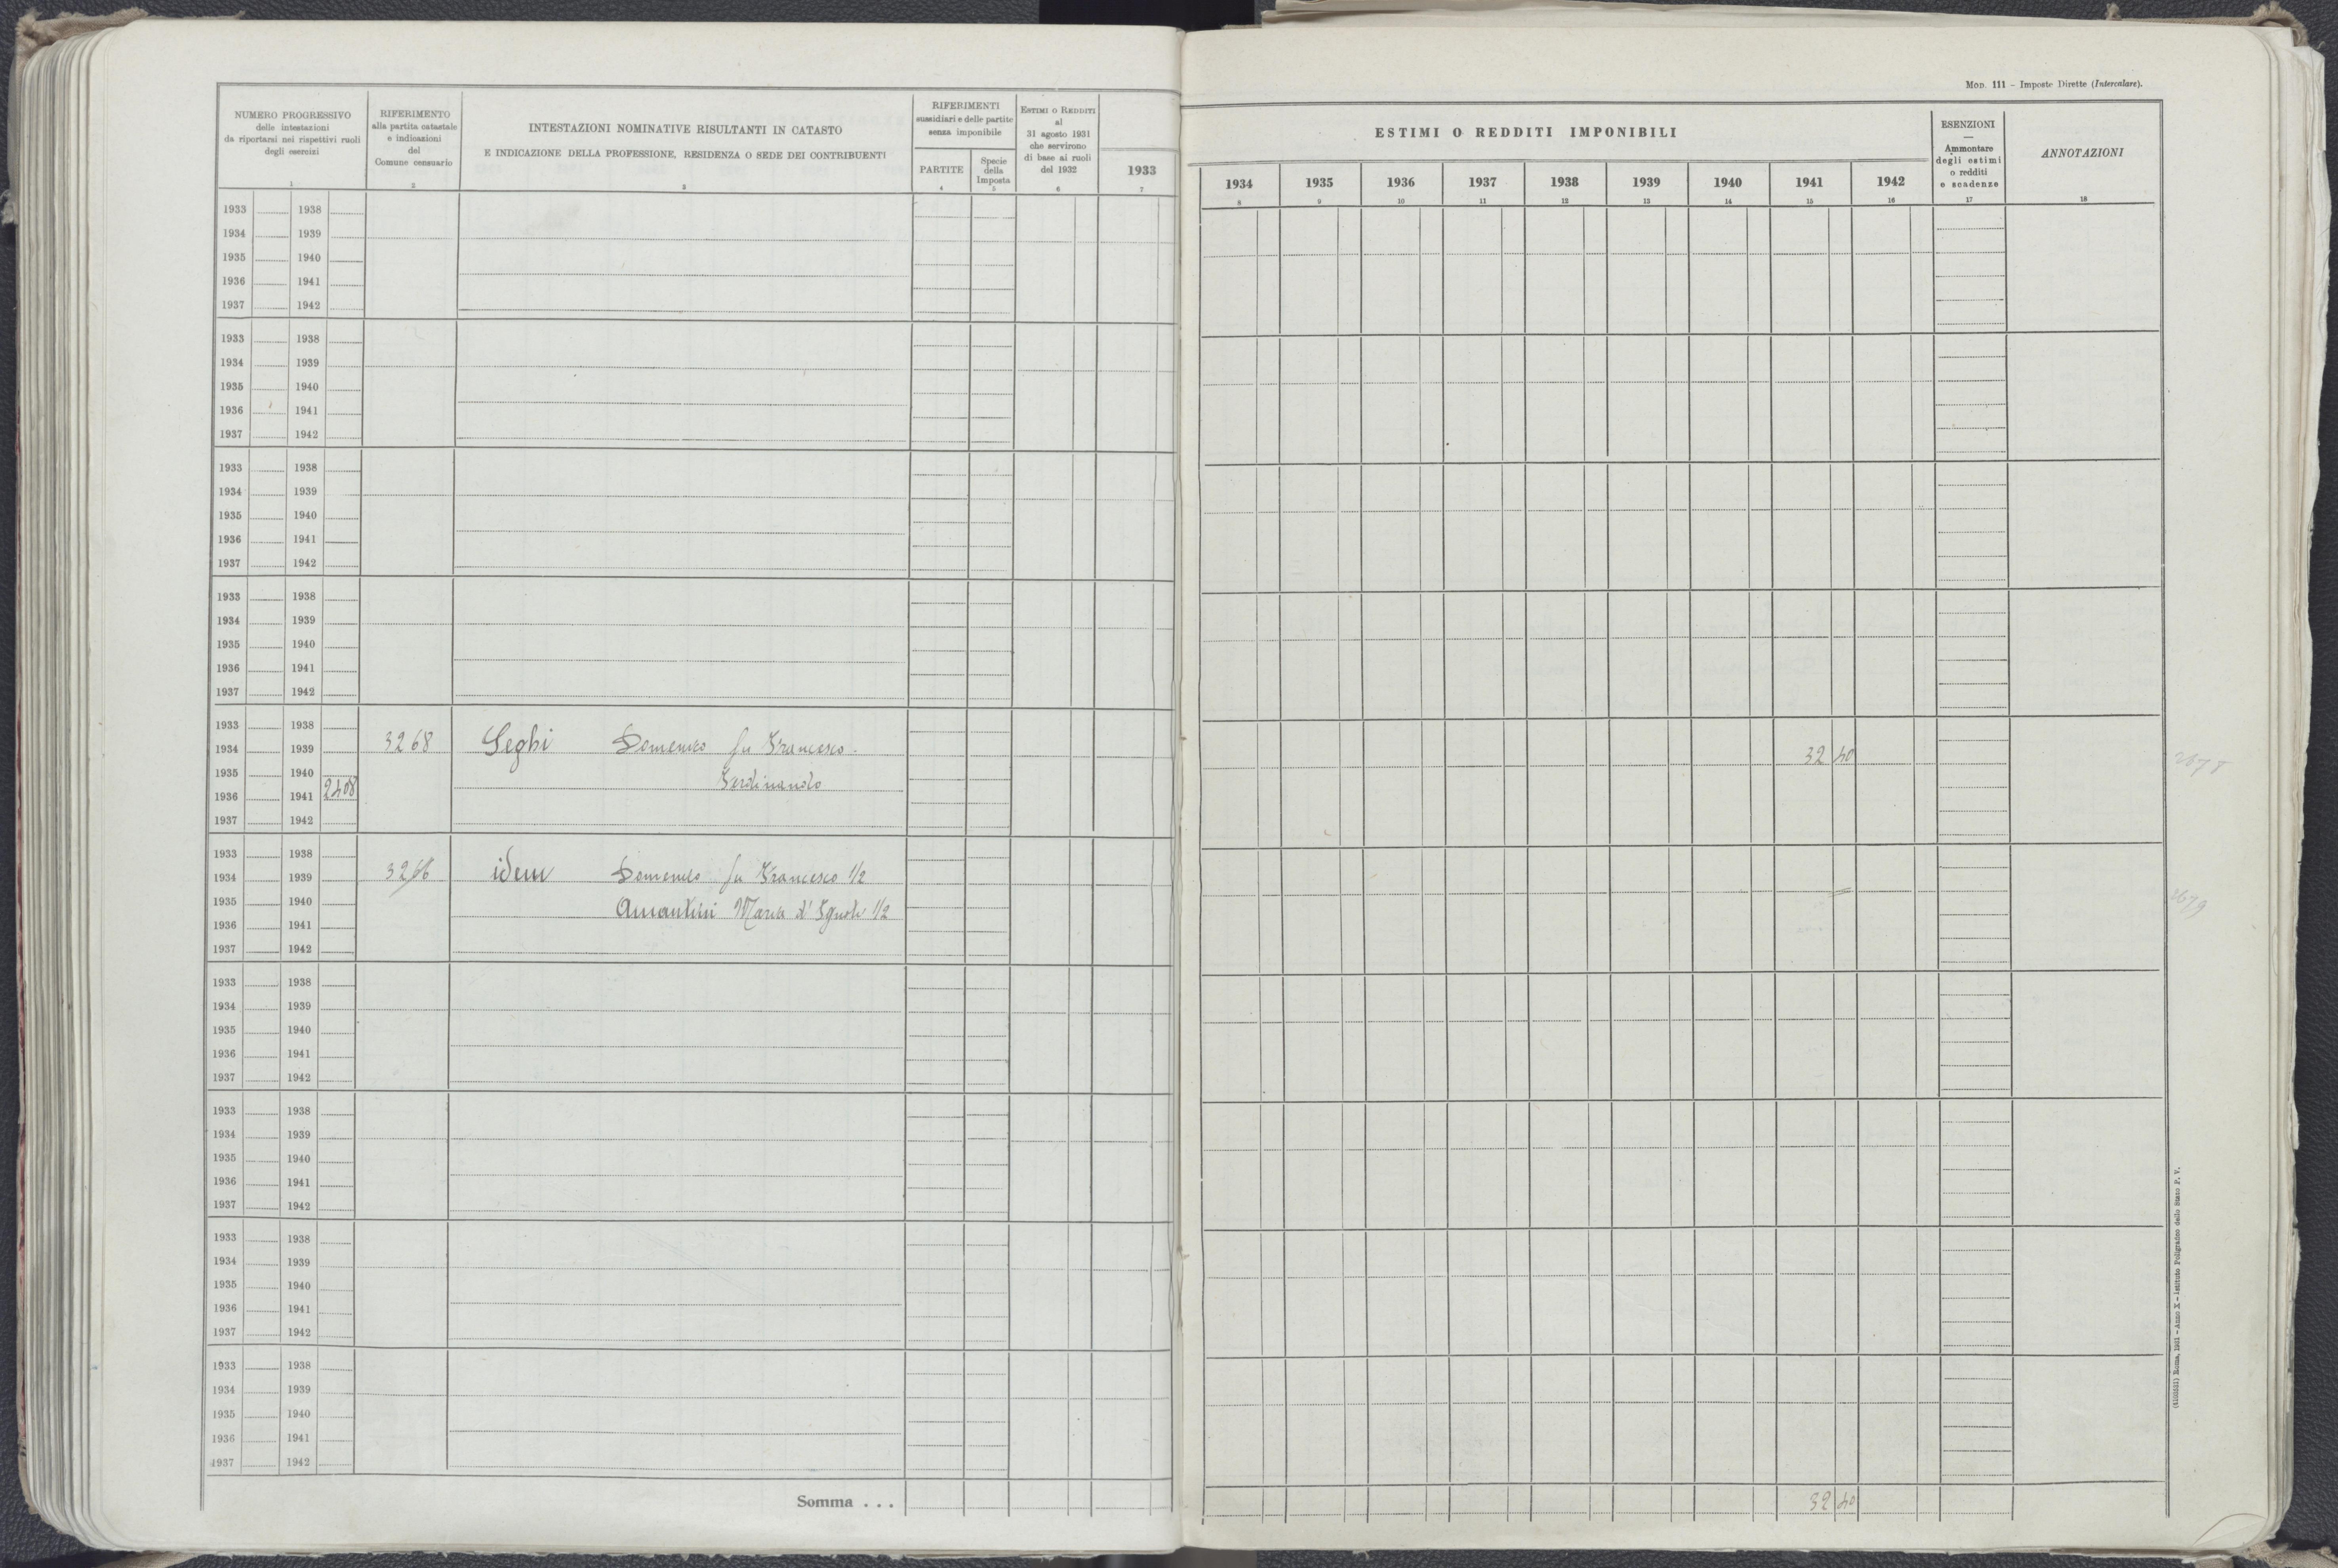 Mod. 111 – Imposte Dirette (Intercalare).
NUMERO PROGRESSIVO
delle intestazioni
da riportarsi nei rispettivi ruoli
degli esercizi
1
RIFERIMENTO
alla partita catastale
e indicazioni
del
Comune censuario
2
INTESTAZIONI NOMINATIVE RISULTANTI IN CATASTO
E INDICAZIONE DELLA PROFESSIONE, RESIDENZA O SEDE DEI CONTRIBUENTI
3
RIFERIMENTI
sussidiari e delle partite
senza imponibile
PARTITE
4
Specie
della
Imposta
5
Estimi o Redditi
al
31 agosto 1931
che servirono
di base ai ruoli
del 1932
6
1933
7
ESTIMI O REDDITI IMPONIBILI
1934 1935 1936 1937 1938 1939 1940 1941 1942
8 9 10 11 12 13 14 15 16
ESENZIONI
—
Ammontare
degli estimi
o redditi
e scadenze
17
ANNOTAZIONI
18
1933 1938
1934 1939
1935 1940
1936 1941
1937 1942
1933 1938
1934 1939
1935 1940
1936 1941
1937 1942
1933 1938
1934 1939
1935 1940
1936 1941
1937 1942
1933 1938
1934 1939
1935 1940
1936 1941
1937 1942
1933 1938
1934 1939 3268 Seghi Domenico fu Francesco 32 40
1935 1940 Ferdinando
1936 1941 2408
1937 1942
1933 1938
1934 1939 idem Domenico fu Francesco 1/2
1935 1940 Amantini Maria d' 1/2
1936 1941
1937 1942
1933 1938
1934 1939
1935 1940
1936 1941
1937 1942
1933 1938
1934 1939
1935 1940
1936 1941
1937 1942
1933 1938
1934 1939
1935 1940
1936 1941
1937 1942
1933 1938
1934 1939
1935 1940
1936 1941
1937 1942
Somma . . . 32 40
(4100581) Roma, 1931 – Anno X – Istituto Poligrafico dello Stato P. V.